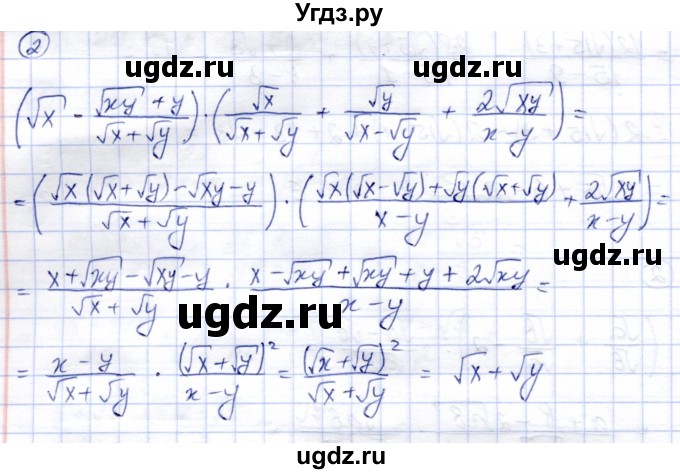 Угдз.ру
② ugdz.ru ugdz.ru
(√x - (√xy + y)/(√x + √y)) · (√x/(√x + √y) + √y/(√x - √y) + 2√xy/(x - y)) =
= ((√x(√x + √y) - √xy - y)/(√x + √y)) · ((√x(√x - √y) + √y(√x + √y))/(x - y) + 2√xy/(x - y)) =
= (x + √xy - √xy - y)/(√x + √y) · (x - √xy + √xy + y + 2√xy)/(x - y) =
ugdz.ru ugdz.ru
= (x - y)/(√x + √y) · (√x + √y)²/(x - y) = (√x + √y)²/(√x + √y) = √x + √y
ugdz.ru